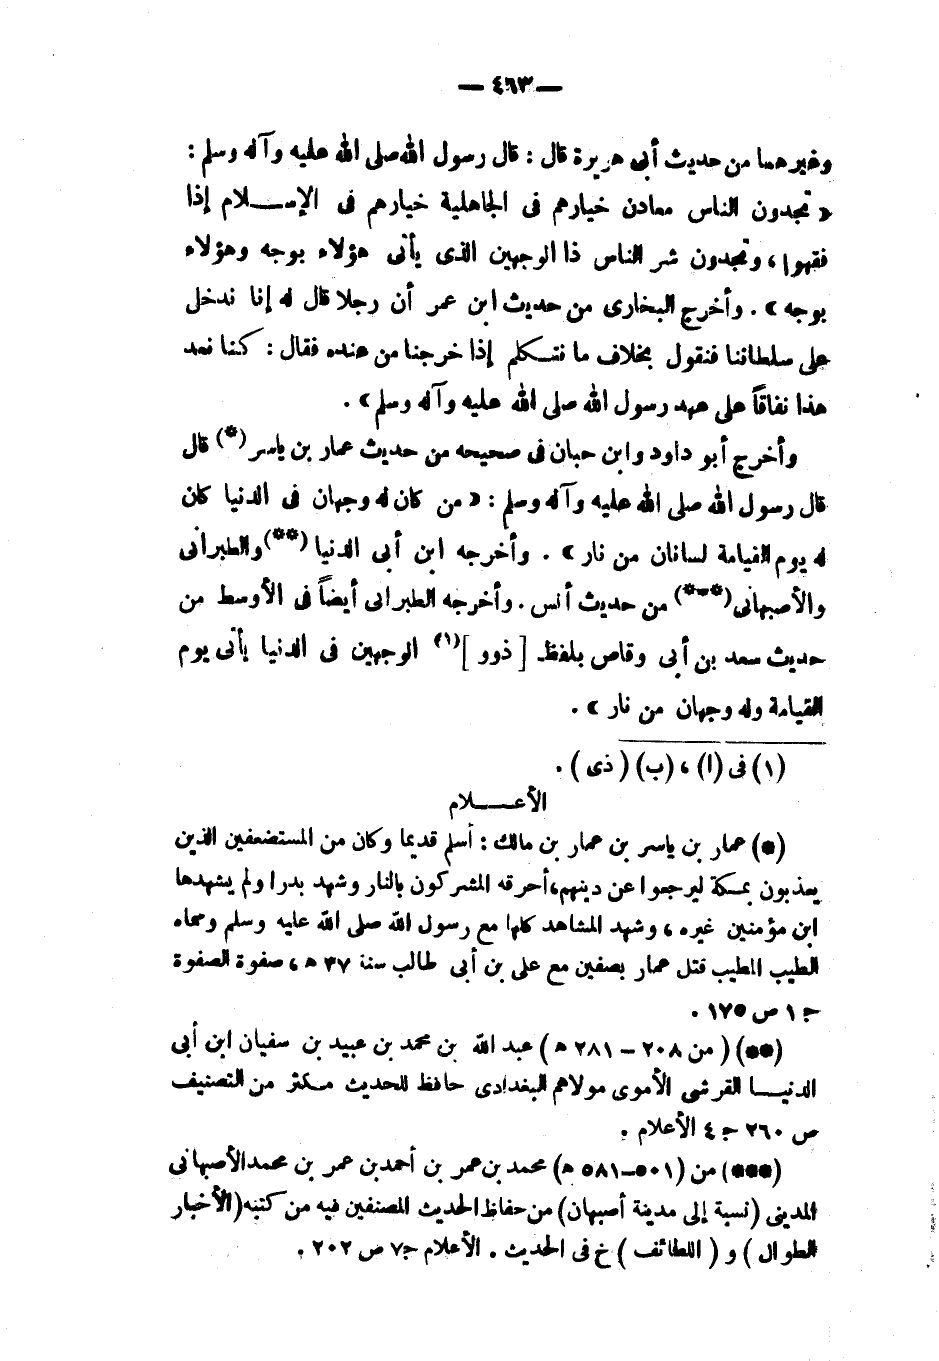 — ٤٦٣ —
وغيرهما من حديث أبى هريرة قال : قال رسول الله صلى الله عليه وآله وسلم :
« تجدون الناس معادن خيارهم فى الجاهلية خيارهم فى الإسـلام إذا
فقهوا ، وتجدون شر الناس ذا الوجهين الذى يأتى هؤلاء بوجه وهؤلاء
بوجه » . وأخرج البخارى من حديث ابن عمر أن رجلا قال له إنا ندخل
على سلطاننا فنقول بخلاف ما نتـكلم إذا خرجنا من عنده فقال : كنا نعد
هذا نفاقاً على عهد رسول الله صلى الله عليه وآله وسلم » .
وأخرج أبو داود وابن حبان فى صحيحه من حديث عمار بن ياسر (*) قال
قال رسول الله صلى الله عليه وآله وسلم : « من كان له وجهان فى الدنيا كان
له يوم القيامة لسانان من نار » . وأخرجه ابن أبى الدنيا (**) والطبرانى
والأصبهانى (***) من حديث أنس . وأخرجه الطبرانى أيضاً فى الأوسط من
حديث سعد بن أبى وقاص بلفظ [ ذوو ] (١) الوجهين فى الدنيا يأتى يوم
القيامة وله وجهان من نار » .
(١) فى (ا) ، (ب) ( ذى ) .
الأعـــلام
(*) عمار بن ياسر بن عمار بن مالك : أسلم قديما وكان من المستضعفين الذين
يعذبون بمكة ليرجعوا عن دينهم، أحرقه المشركون بالنار وشهد بدرا ولم يشهدها
ابن مؤمنين غيره ، وشهد المشاهد كلها مع رسول الله صلى الله عليه وسلم وسماه
الطيب المطيب قتل عمار بصفين مع على بن أبى طالب سنة ٣٧ ه ، صفوة الصفوة
ج ١ ص ١٧٥ .
(**) ( من ٢٠٨ – ٢٨١ ه ) عبد الله بن محمد بن عبيد بن سفيان ابن أبى
الدنيـا القرشى الأموى مولاهم البغدادى حافظ للحديث مـكثر من التصنيف
ص ٢٦٠ ج ٤ الأعلام .
(***) من (٥٠١–٥٨١ ه) محمد بن عمر بن أحمد بن عمر بن محمد الأصبهانى
المدينى (نسبة إلى مدينة أصبهان) من حفاظ الحديث المصنفين فيه من كتبه (الأخبار
الطوال ) و ( اللطائف ) خ فى الحديث . الأعلام ج٧ ص ٢٠٢ .